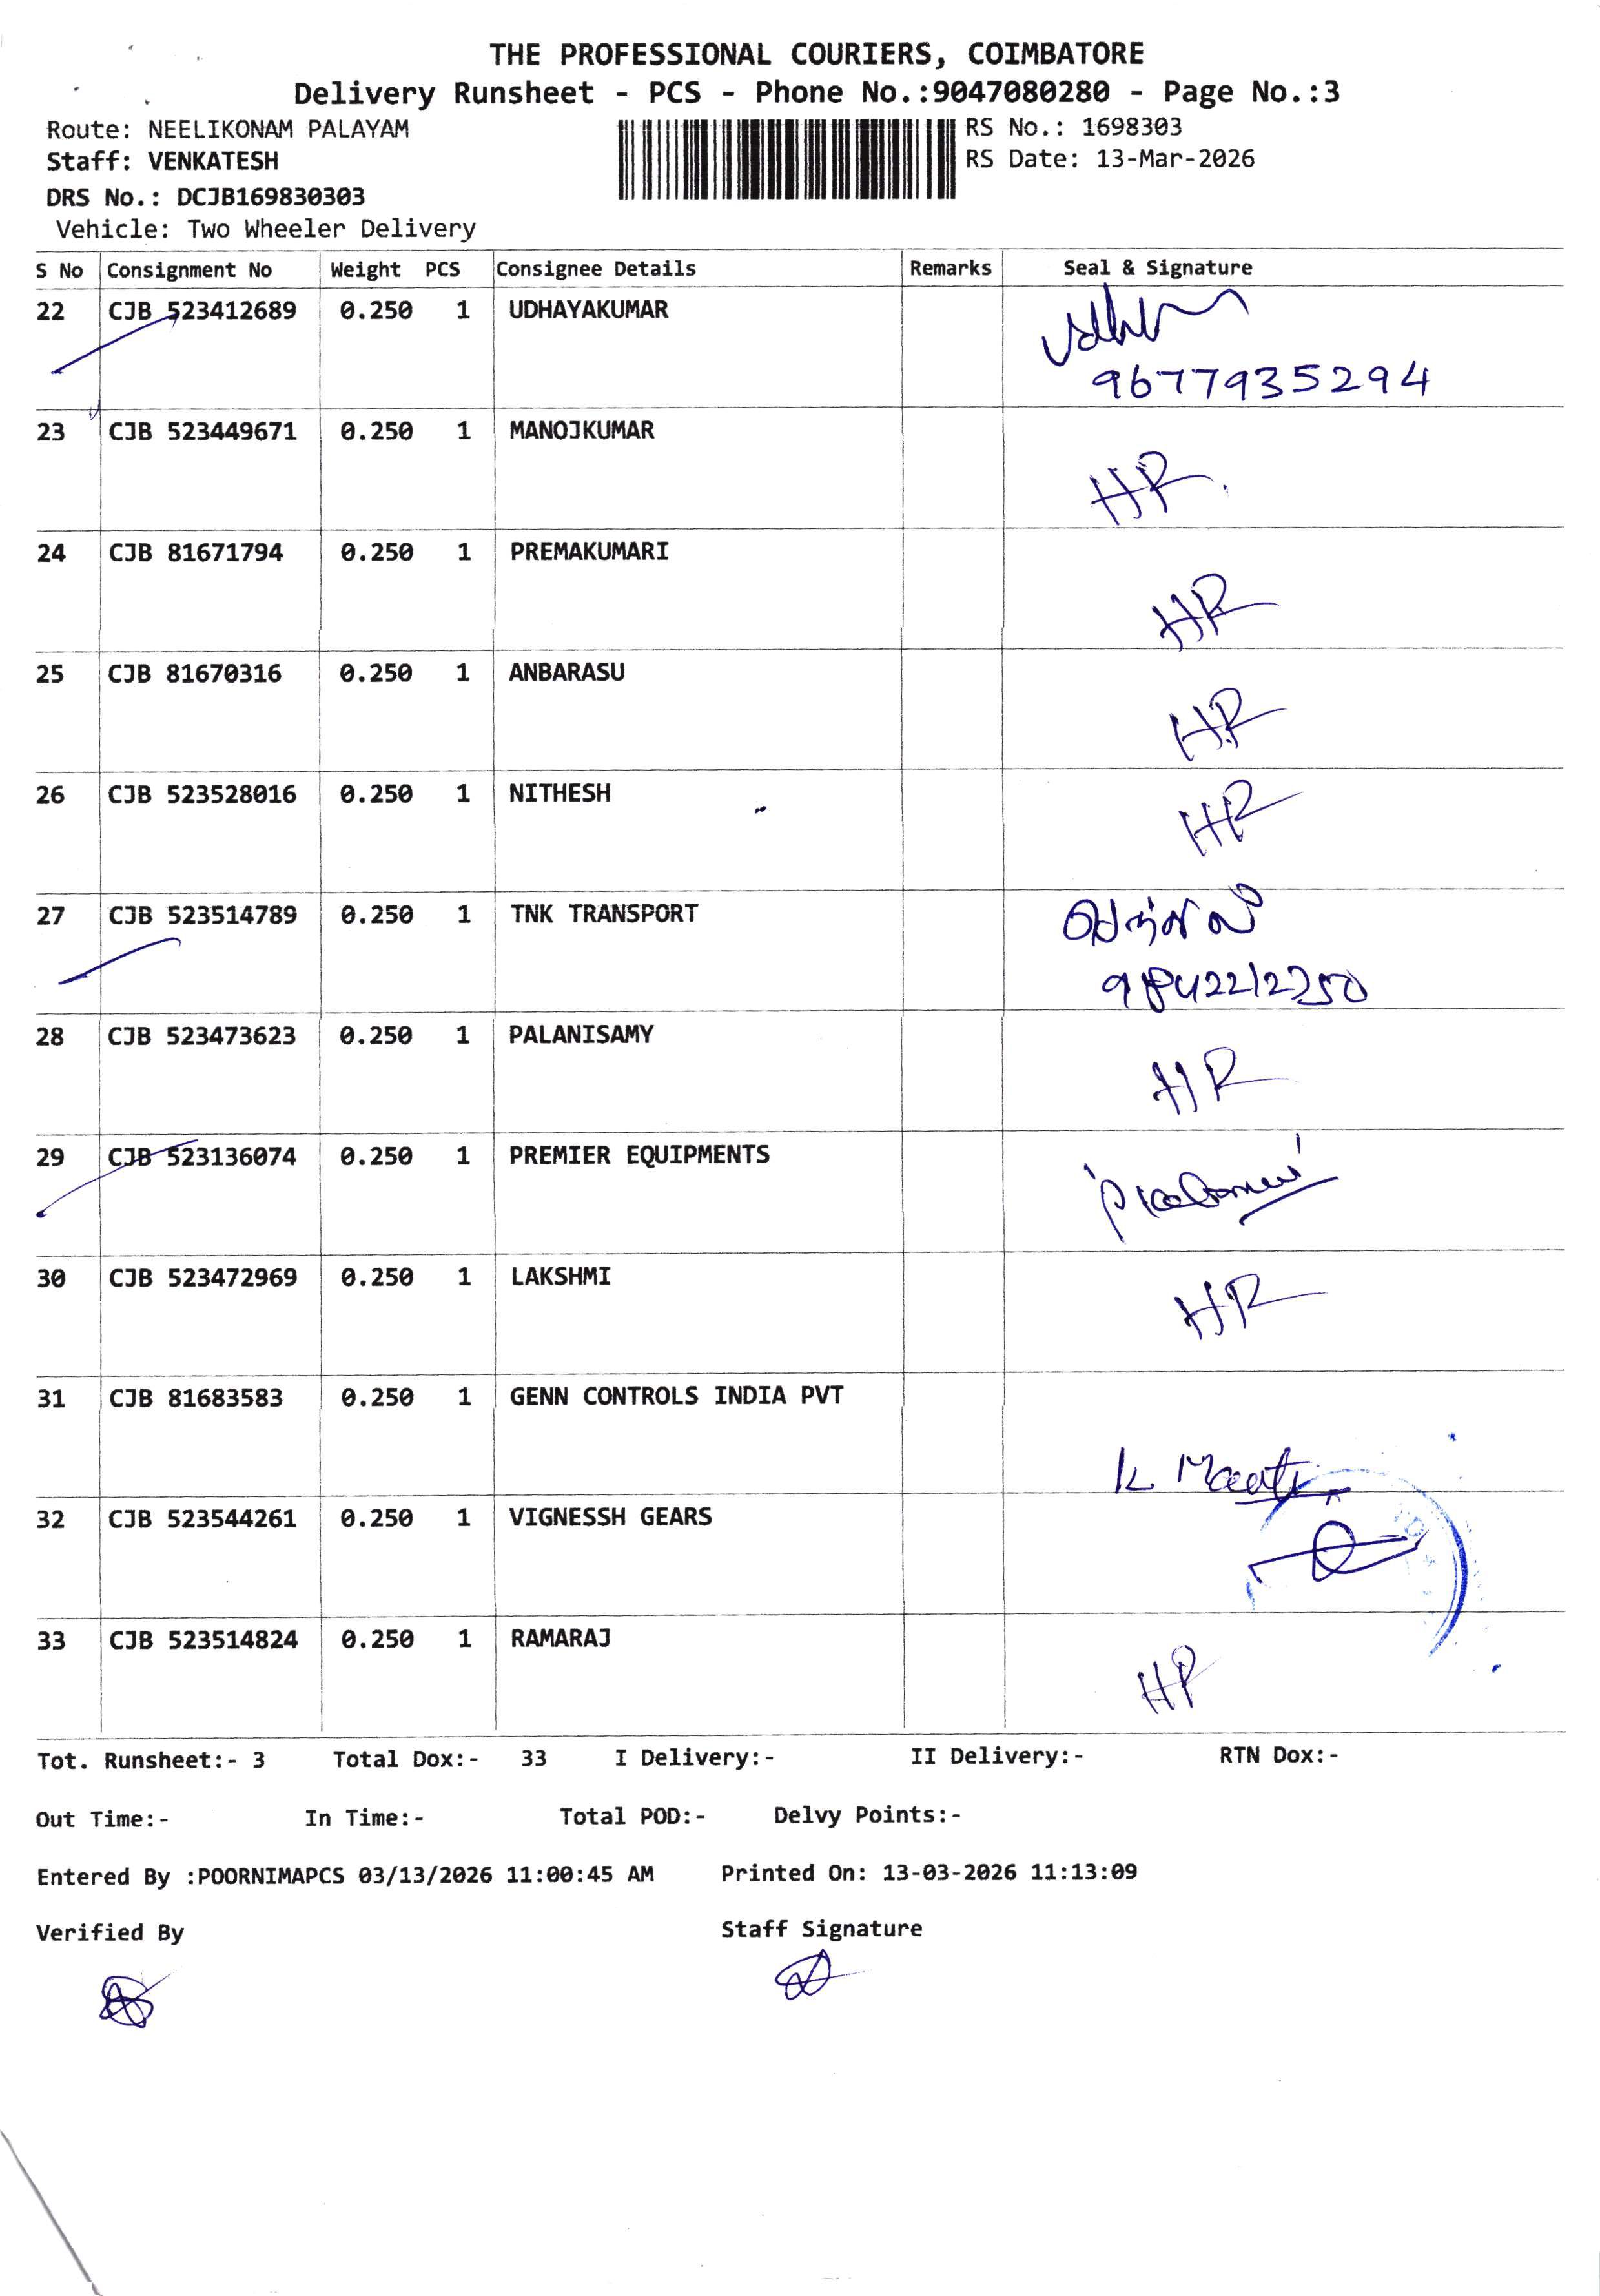 THE PROFESSIONAL COURIERS, COIMBATORE
Delivery Runsheet - PCS - Phone No.:9047080280 - Page No.:3
Route: NEELIKONAM PALAYAM
RS No.: 1698303
Staff: VENKATESH
RS Date: 13-Mar-2026
DRS No.: DCJB169830303
Vehicle: Two Wheeler Delivery
S No Consignment No Weight PCS Consignee Details Remarks Seal & Signature
22 CJB 523412689 0.250 1 UDHAYAKUMAR
9677935294
23 CJB 523449671 0.250 1 MANOJKUMAR
HR.
24 CJB 81671794 0.250 1 PREMAKUMARI
HR
25 CJB 81670316 0.250 1 ANBARASU
HR
26 CJB 523528016 0.250 1 NITHESH HR
27 CJB 523514789 0.250 1 TNK TRANSPORT
28 CJB 523473623 0.250 1 PALANISAMY
HR
29 CJB 523136074 0.250 1 PREMIER EQUIPMENTS
30 CJB 523472969 0.250 1 LAKSHMI
HR
31 CJB 81683583 0.250 1 GENN CONTROLS INDIA PVT
K
32 CJB 523544261 0.250 1 VIGNESSH GEARS
33 CJB 523514824 0.250 1 RAMARAJ
HR
Tot. Runsheet:- 3 Total Dox:- 33 I Delivery:- II Delivery:- RTN Dox:-
Out Time:- In Time:- Total POD:- Delvy Points:-
Entered By :POORNIMAPCS 03/13/2026 11:00:45 AM Printed On: 13-03-2026 11:13:09
Verified By Staff Signature